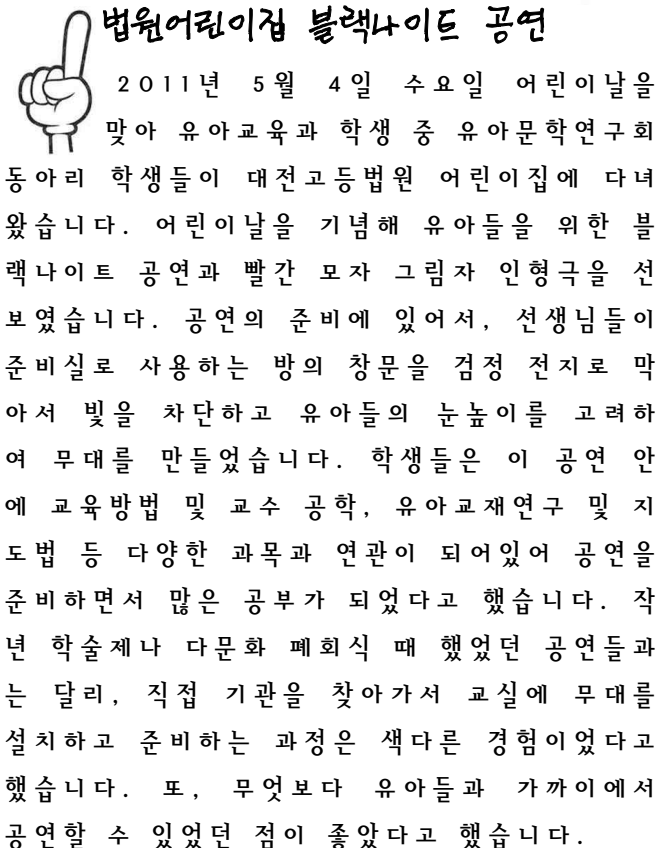 법원어린이집 블랙나이트 공연
2011년 5월 4일 수요일 어린이날을
맞아 유아교육과 학생 중 유아문학연구회
동아리 학생들이 대전고등법원 어린이집에 다녀
왔습니다. 어린이날을 기념해 유아들을 위한 블
랙나이트 공연과 빨간 모자 그림자 인형극을 선
보였습니다. 공연의 준비에 있어서, 선생님들이
준비실로 사용하는 방의 창문을 검정 전지로 막
아서 빛을 차단하고 유아들의 눈높이를 고려하
여 무대를 만들었습니다. 학생들은 이 공연 안
에 교육방법 및 교수 공학, 유아교재연구 및 지
도법 등 다양한 과목과 연관이 되어있어 공연을
준비하면서 많은 공부가 되었다고 했습니다. 작
년 학술제나 다문화 폐회식 때 했었던 공연들과
는 달리, 직접 기관을 찾아가서 교실에 무대를
설치하고 준비하는 과정은 색다른 경험이었다고
했습니다. 또, 무엇보다 유아들과 가까이에서
공연할 수 있었던 점이 좋았다고 했습니다.